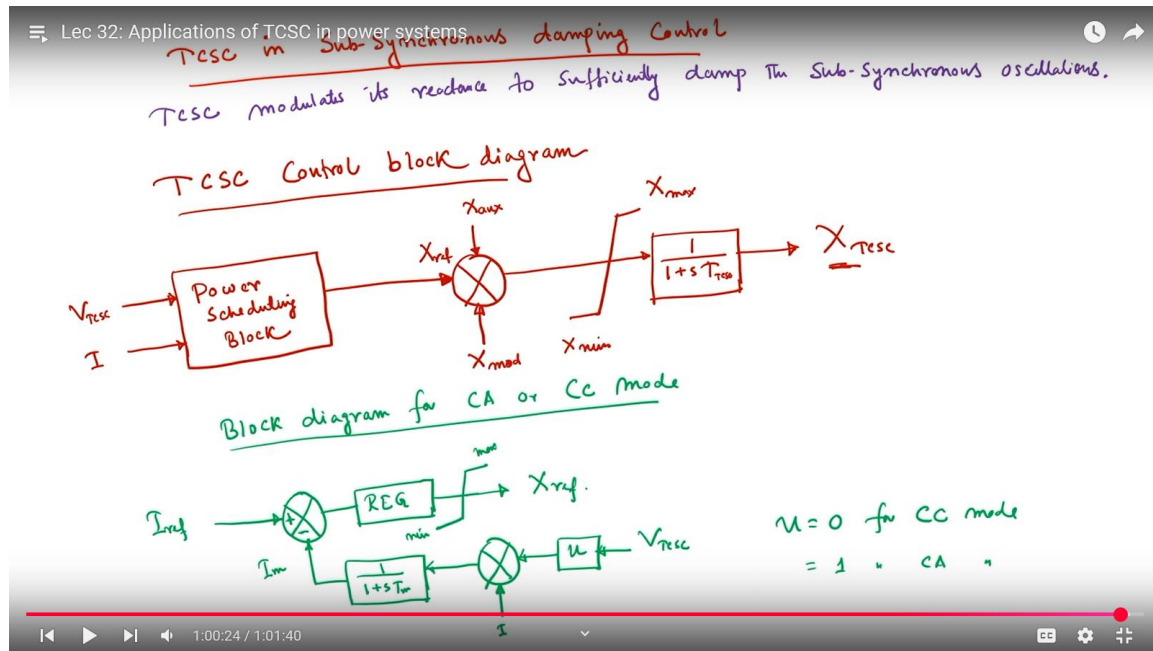 Lec 32: Applications of TCSC in power systems
TCSC in Sub-Synchronous damping Control
TCSC modulates its reactance to sufficiently damp the Sub-Synchronous oscillations.
TCSC Control block diagram
Xaux
Xmax
Xref
VTCSC
I
Power Scheduling Block
1
1+sTTCSC
XTCSC
Xmod
Xmin
Block diagram for CA or CC mode
max
Iref
+
-
REG
Xref.
min
Im
1
1+sTm
u
VTCSC
I
u = 0 for CC mode
= 1 " CA "
1:00:24 / 1:01:40
CC